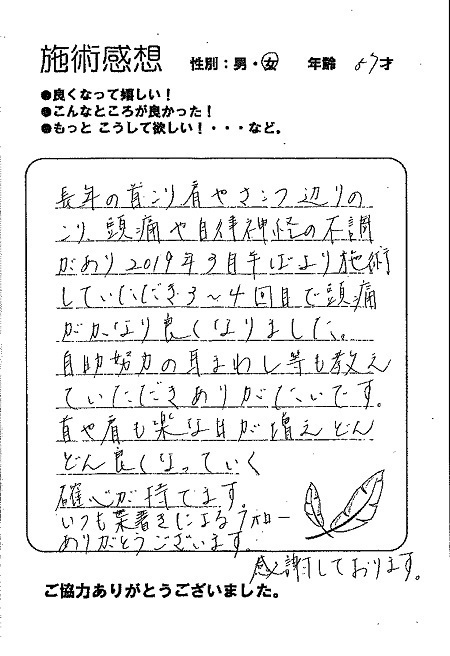 施術感想 性別：男・女 年齢 57才
●良くなって嬉しい！
●こんなところが良かった！
●もっと こうして欲しい！・・・など。
長年の首こり肩やさこつ辺りの
こり、頭痛や自律神経の不調
があり2019年3月半ばより施術
していただき3～4回目で頭痛
がかなり良くなりました。
自助努力の耳まわし等も教え
ていただきありがたいです。
首や肩も楽な日が増えどん
どん良くなっていく
確心が持てます
いつも葉書きによるフォロー
ありがとうございます。
感謝しております。
ご協力ありがとうございました。